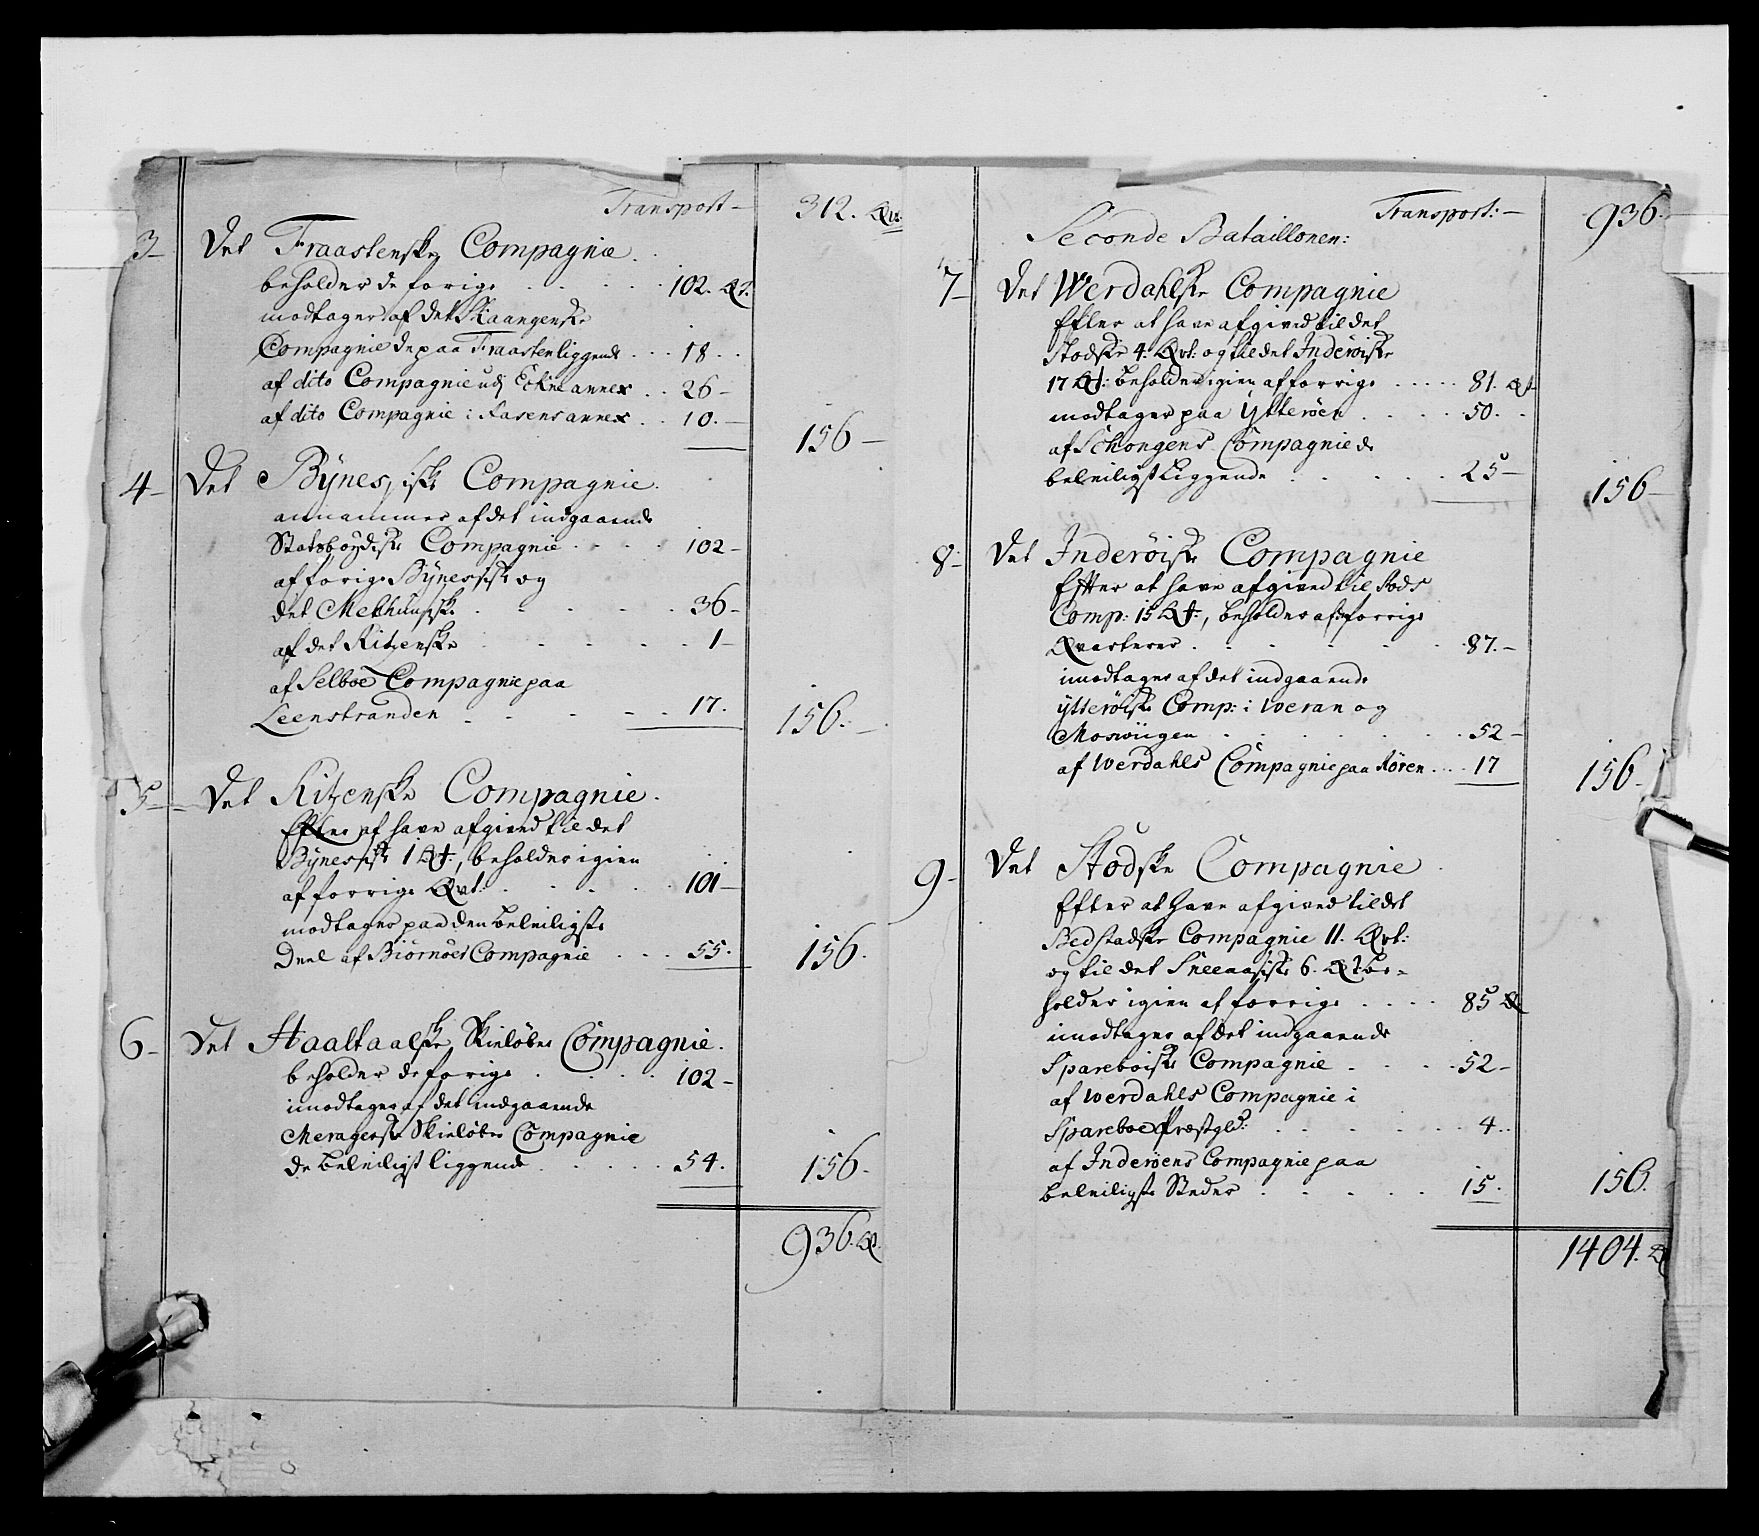 Transport — 312. Qv:
3 – Det Fraastenske Compagnie.
beholder de forige . . . . . 102. Qt:
modtager af det Skaangenske
Compagnie de paa Fraasten liggende . . . 18 . .
af dito Compagnie udj Eckne annex . . 26 –
af dito Compagnie i Aasens annex . . 10. –
156 –
4 – Det Bÿnesiske Compagnie.
annammer af det indgaaende
Statsbøÿdiske Compagnie . . . . 102 –
af forige Bÿnesiske og
det Melhuusiske . . . . . . 36 –
af det Ritzenske . . . . . . 1 –
af Selboe Compagnie paa
Leenstranden . . . . . 17.
156. –
5 – Det Ritzenske Compagnie.
Efter at have afgived til det
Bÿnesiske 1 Qt:, beholder igien
af forrige Qvt: . . . . . 101 –
modtager paa den beleiligste
Deel af Biørnöer Compagnie . . . 55.
156.
6 – Det Haaltaalske Skieløber Compagnie.
beholder de forige . . . . 102 –
imodtager af det indgaaende
Meragerske Skieløber Compagnie
de beleiligst liggende . . . . . 54.
156.
936. Qt.
Transport: — 936.
Seconde Bataillonen:
7 – Det Werdahlske Compagnie
Efter at have afgived til det
Stodske 4. Qvt: og til det Inderöiske
17 Qt: beholder igien af forrige . . . . . 81. Qt
modtager paa Ÿtterøen . . . . 50. .
af Schongens Compagnie de
beleiligst Liggende . . . . . 25 –
156 –
8 – Det Inderöiske Compagnie
Efter at have afgived til Stods
Comp: 15 Qt:, beholder af forrige
Qvarterer . . . . . . . 87. –
imodtager af det indgaaende
ÿtterøiske Comp: i Weran og
Moswiigen . . . . . . . 52 –
af Werdahls Compagnie paa Røren . . . . 17
156 –
9 – Det Stodske Compagnie
Efter at have afgived til det
Bedstadske Compagnie 11. Qvt:
og til det Sneenasiske 6. Qt be-
holder igien af forrige . . . . 85 Qt
imodtager af det indgaaende
Spareboiske Compagnie . . . . 52 –
af Werdahls Compagnie i
Spareboe Præstgld: . . . . . . 4 . .
af Inderøens Compagnie paa
beleiligste Steder . . . . . 15.
156.
1404. Qt